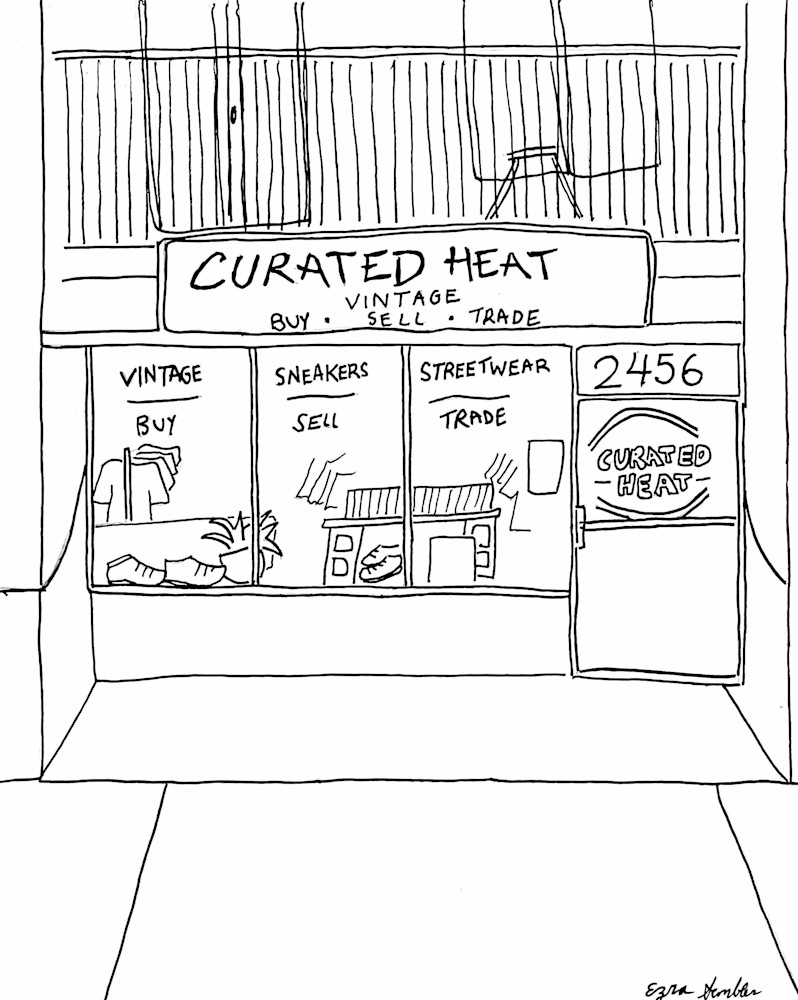 CURATED HEAT
VINTAGE
BUY · SELL · TRADE
VINTAGE
BUY
SNEAKERS
SELL
STREETWEAR
TRADE
2456
CURATED
-HEAT-
Ezra